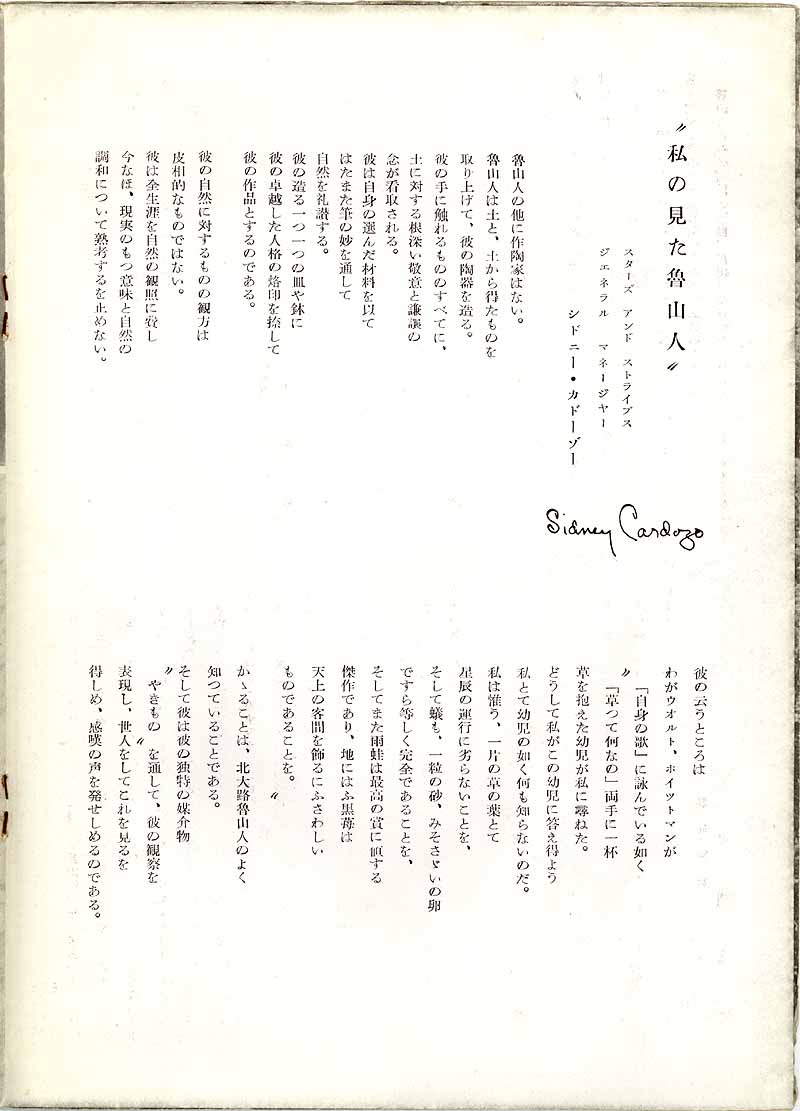 〃私の見た魯山人〃
スターズ アンド ストライプス
ジエネラル マネージヤー
シドニー・カドーゾー
Sidney Cardozo
魯山人の他に作陶家はない。
魯山人は土と、土から得たものを
取り上げて、彼の陶器を造る。
彼の手に触れるもののすべてに、
土に対する根深い敬意と謙譲の
念が看取される。
彼は自身の選んだ材料を以て
はたまた筆の妙を通して
自然を礼讃する。
彼の造る一つ一つの皿や鉢に
彼の卓越した人格の烙印を捺して
彼の作品とするのである。
彼の自然に対するものの観方は
皮相的なものではない。
彼は全生涯を自然の観照に費し
今なほ、現実のもつ意味と自然の
調和について熟考するを止めない。
彼の云うところは
わがウオルト、ホイツトマンが
「自身の歌」に詠んでいる如く
〃「草つて何なの」両手に一杯
草を抱えた幼児が私に尋ねた。
どうして私がこの幼児に答え得よう
私とて幼児の如く何も知らないのだ。
私は惟う、一片の草の葉とて
星辰の運行に劣らないことを、
そして蟻も、一粒の砂、みそさゞいの卵
ですら等しく完全であることを、
そしてまた雨蛙は最高の賞に値する
傑作であり、地にはふ黒苺は
天上の客間を飾るにふさわしい
ものであることを。〃
かゝることは、北大路魯山人のよく
知つていることである。
そして彼は彼の独特の媒介物
〃やきもの〃を通して、彼の観察を
表現し、世人をしてこれを見るを
得しめ、感嘆の声を発せしめるのである。